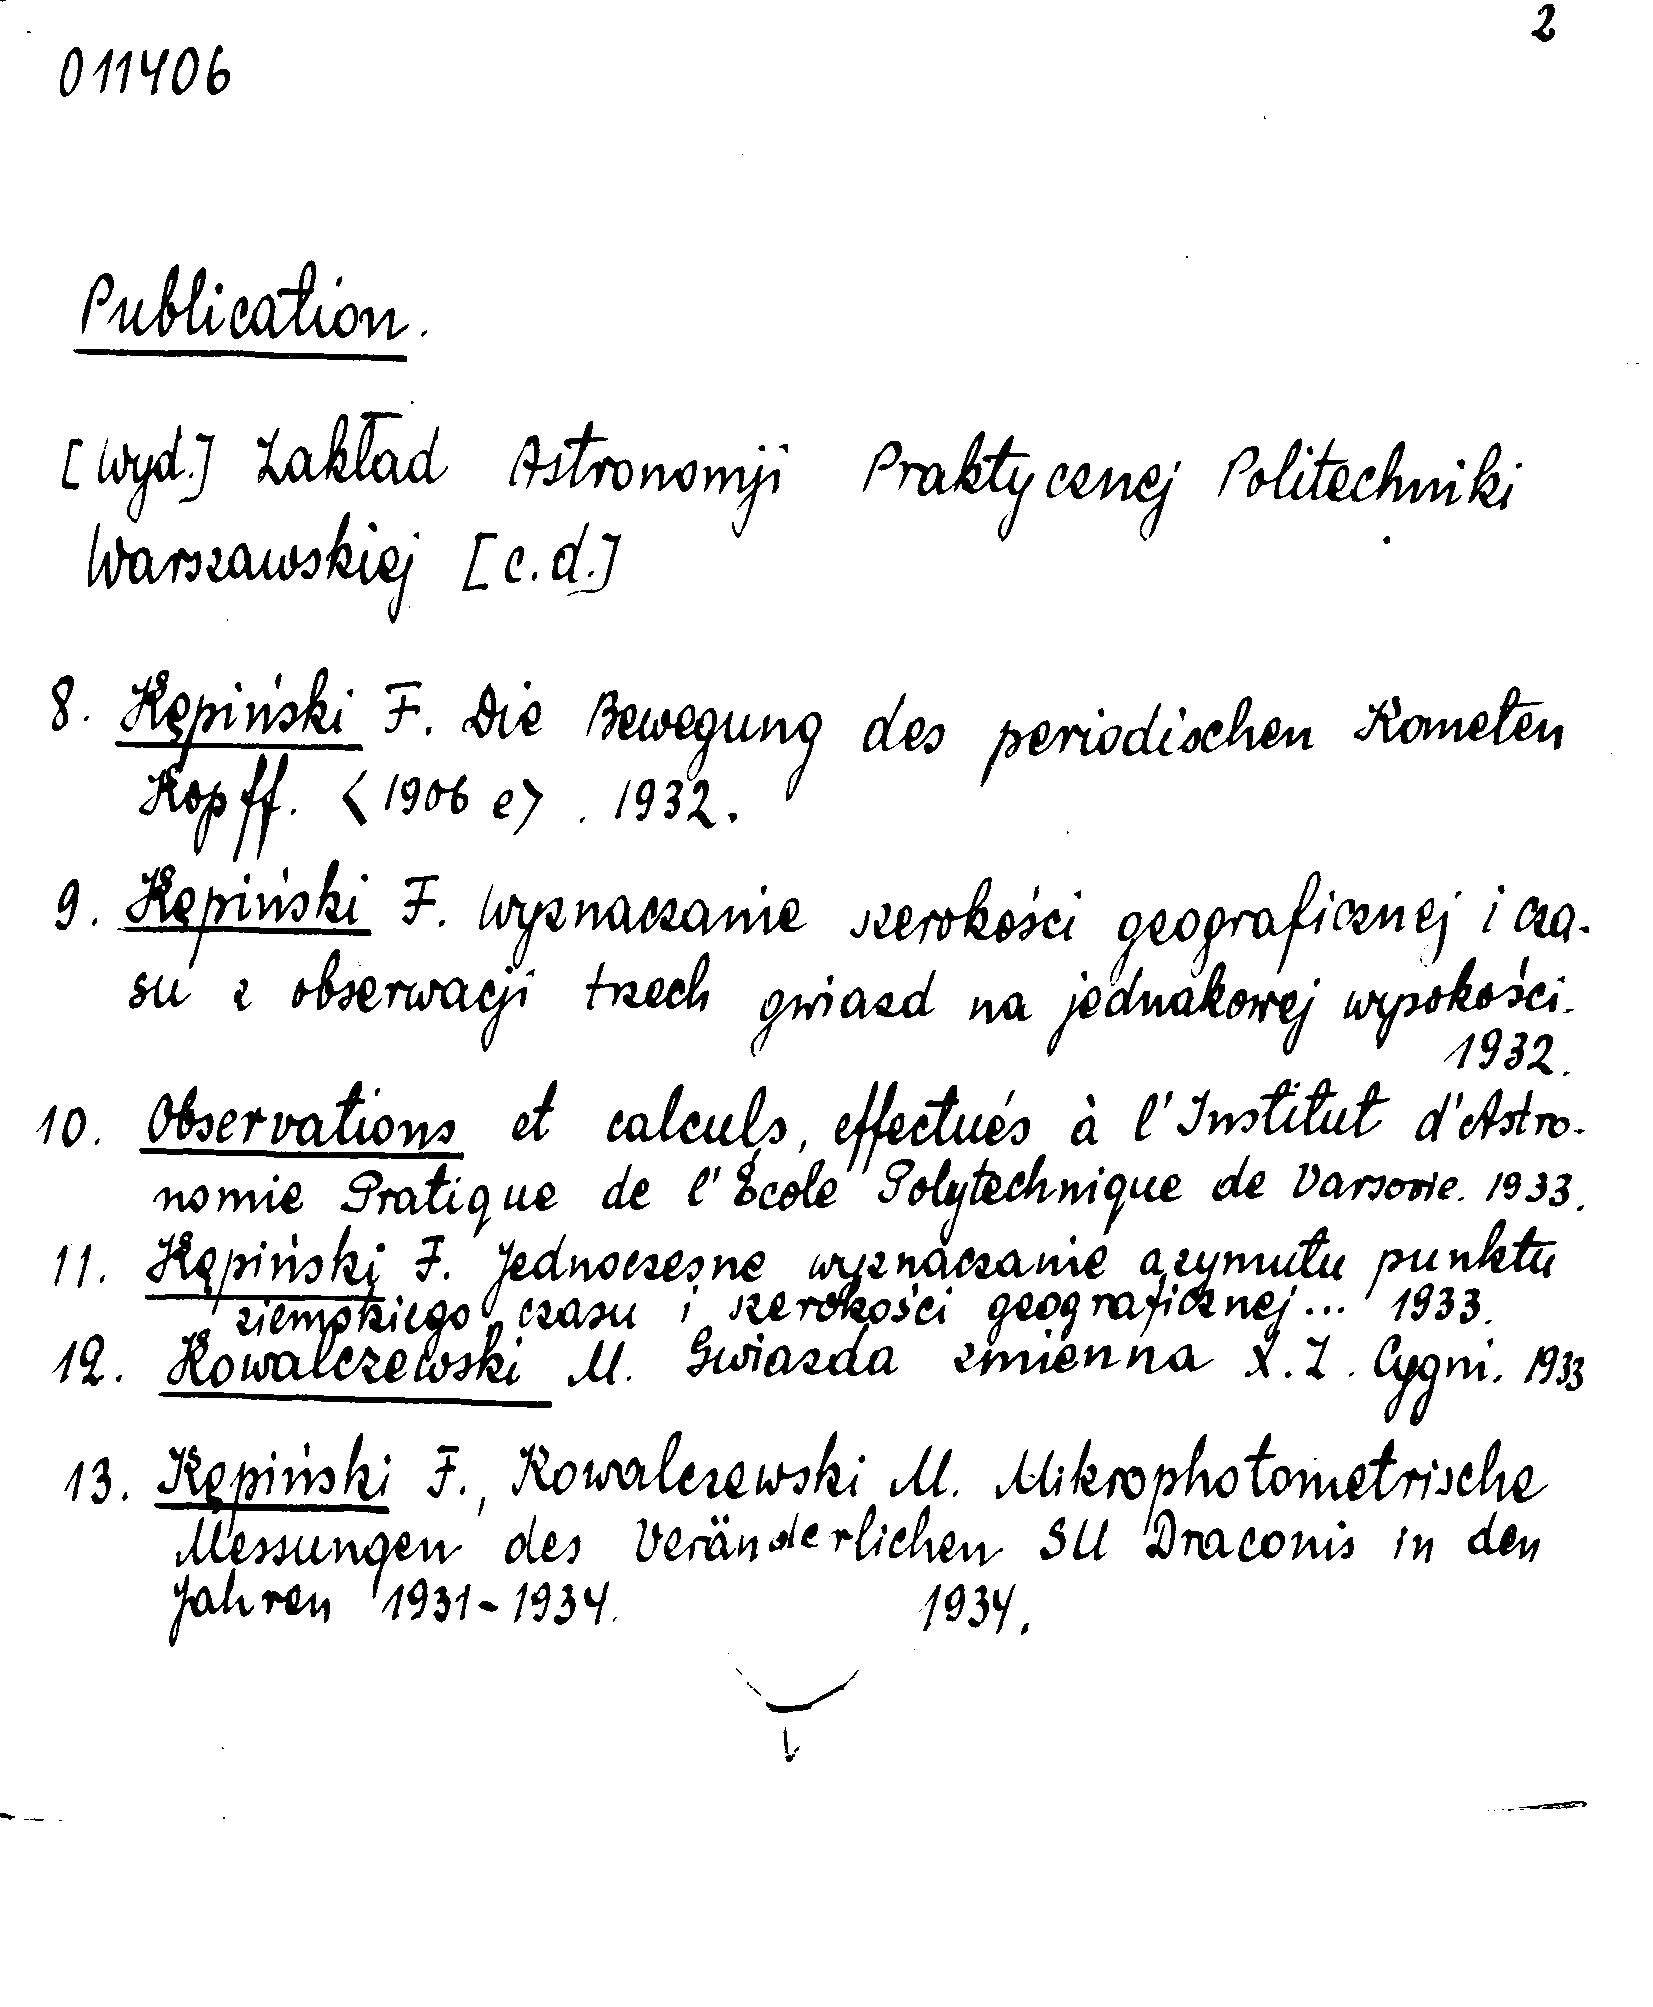 2
011406
Publication.
[Wyd.] Zakład Astronomji Praktycznej Politechniki
Warszawskiej [c.d.]
8. Kępiński F. Die Bewegung des periodischen Kometen
Kopff. <1906 e>. 1932.
9. Kępiński F. Wyznaczanie szerokości geograficznej i cza-
su z obserwacji trzech gwiazd na jednakowej wysokości.
1932.
10. Observations et calculs, effectués à l'Institut d'Astro-
nomie Pratique de l'École Polytechnique de Varsovie. 1933.
11. Kępiński F. Jednoczesne wyznaczanie azymutu punktu
ziemskiego, czasu i szerokości geograficznej... 1933.
12. Kowalczewski M. Gwiazda zmienna X.Z. Cygni. 1933
13. Kępiński F., Kowalczewski M. Mikrophotometrische
Messungen des Veränderlichen SU Draconis in den
Jahren 1931-1934. 1934.